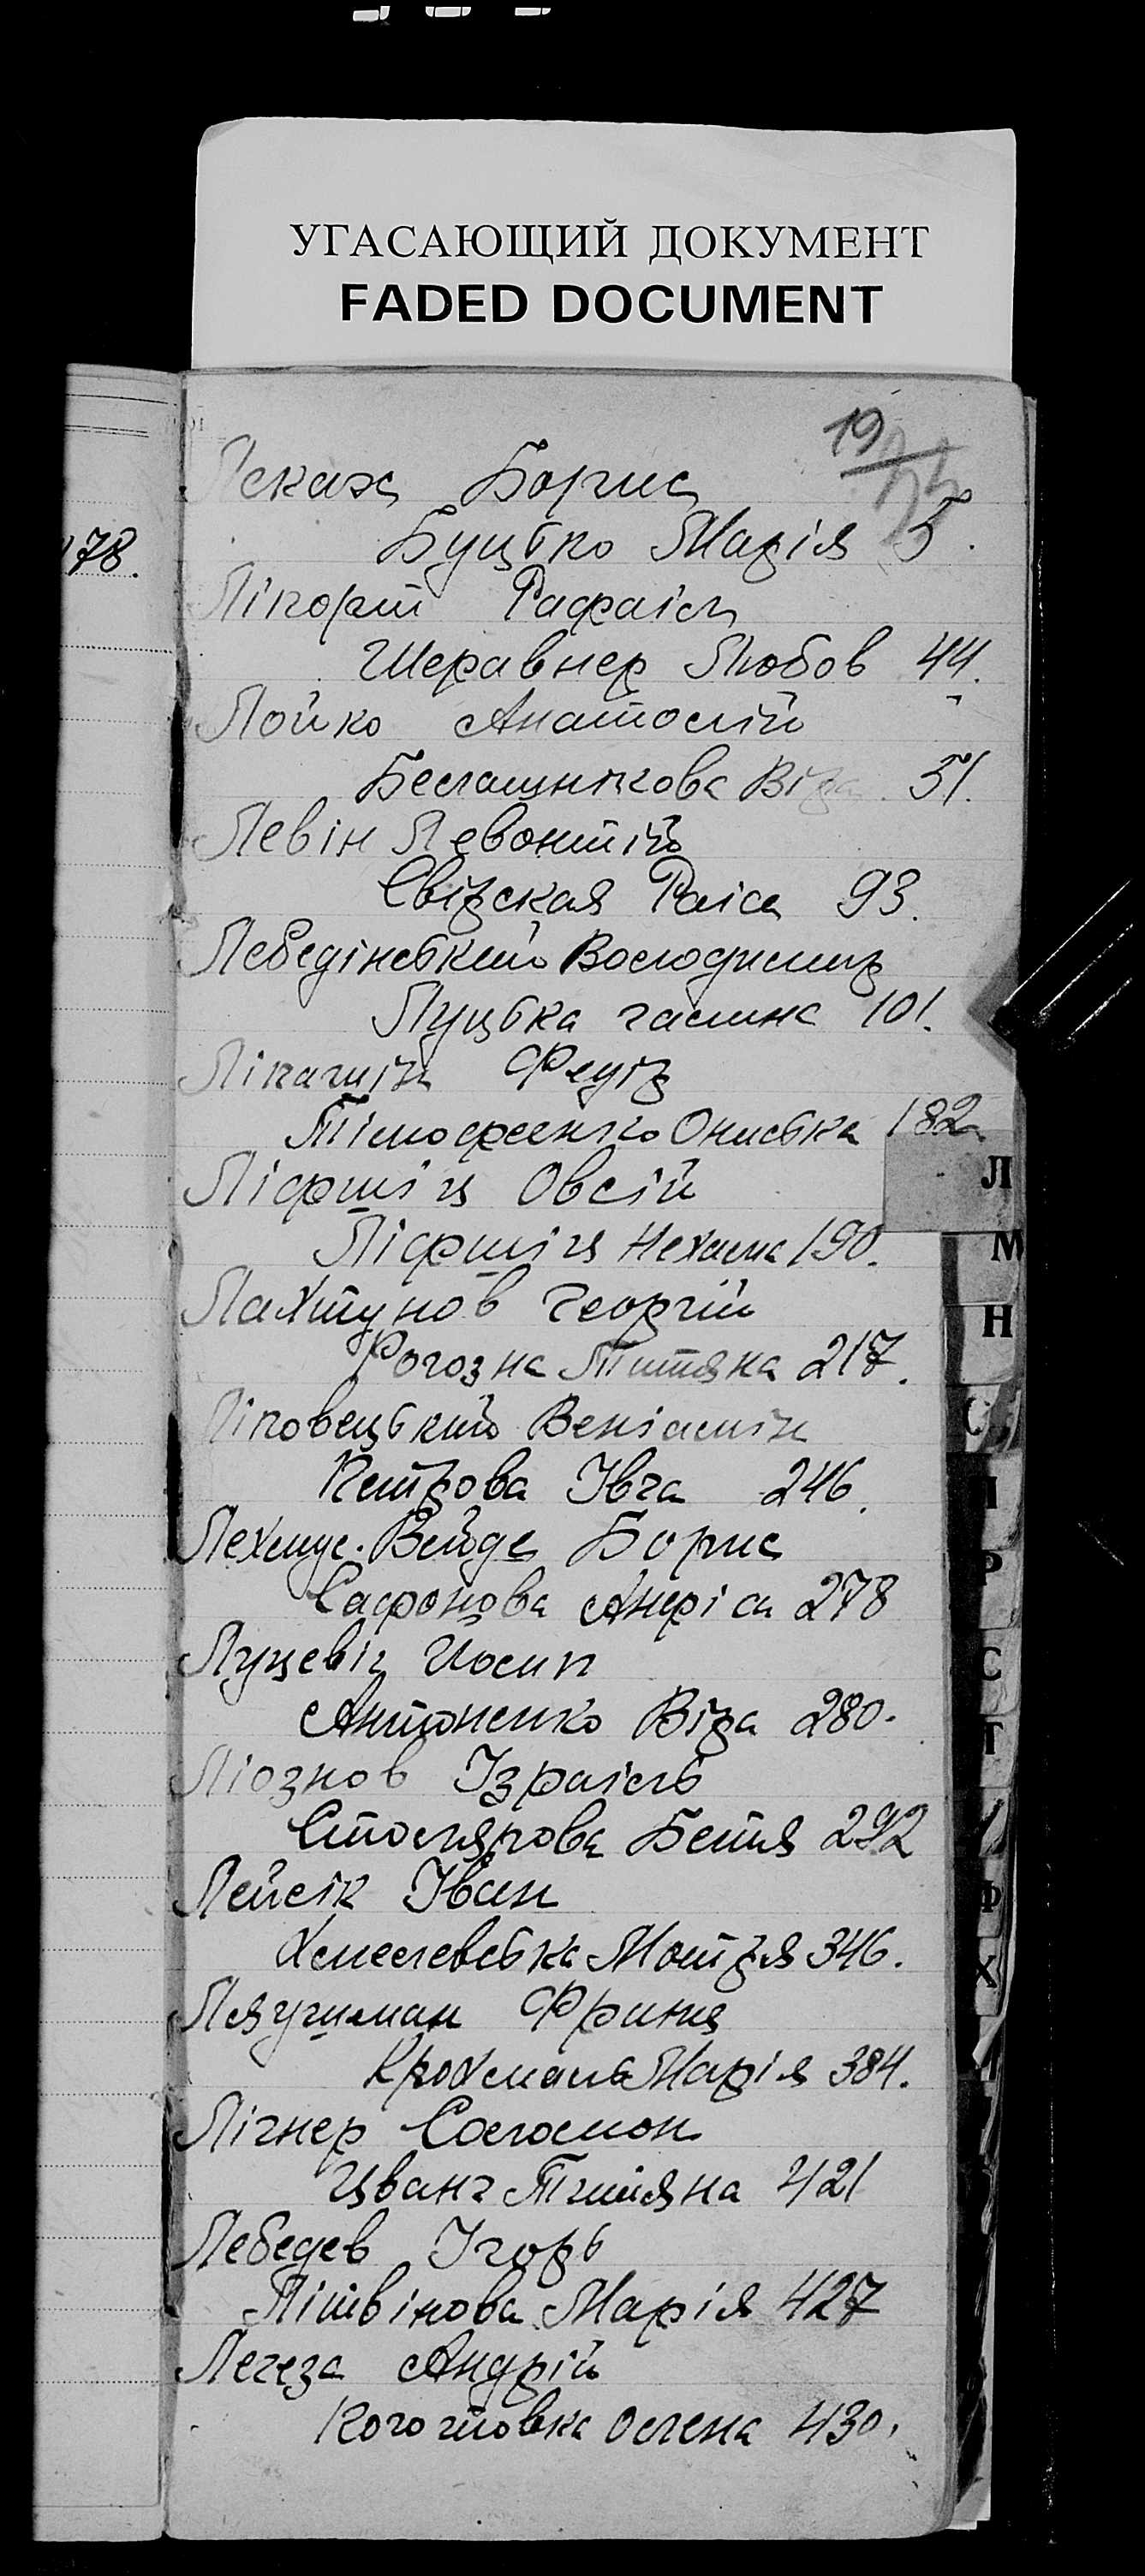 УГАСАЮЩИЙ ДОКУМЕНТ
FADED DOCUMENT
19
178.
Леках Борис
Буцько Марія 5.
Ліпорт Рафаіл
Шеравнер Любов 44.
Лойко Анатолій
Белашникова Віра 51.
Левін Левонтій
Свірская Раіса 93.
Лебедінський Володимир
Луцька Галина 101.
Ліпачин Федір
Тімофеенко Ониська 182
Ліфшіц Овсій
Ліфшіц Нехама 190.
Лахтунов Георгій
Рогозна Титяна 217.
Ліповецький Веніамін
Петрова Івга 246.
Лехмус-Вейде Борис
Сафонова Анфіса 278
Луцевіч Йосип
Антоненко Віра 280.
Ліознов Ізраіль
Столярова Бетя 292
Лейсік Іван
Хмелевська Мотря 346.
Ляушман Франя
Крохмаль Марія 384.
Лічнер Соломон
Цванг Титяна 421
Лебедев Ігорь
Літвінова Марія 427
Легеза Андрій
Коготовка Олена 430.
Л
М
Н
П
Р
С
Т
Ф
Х